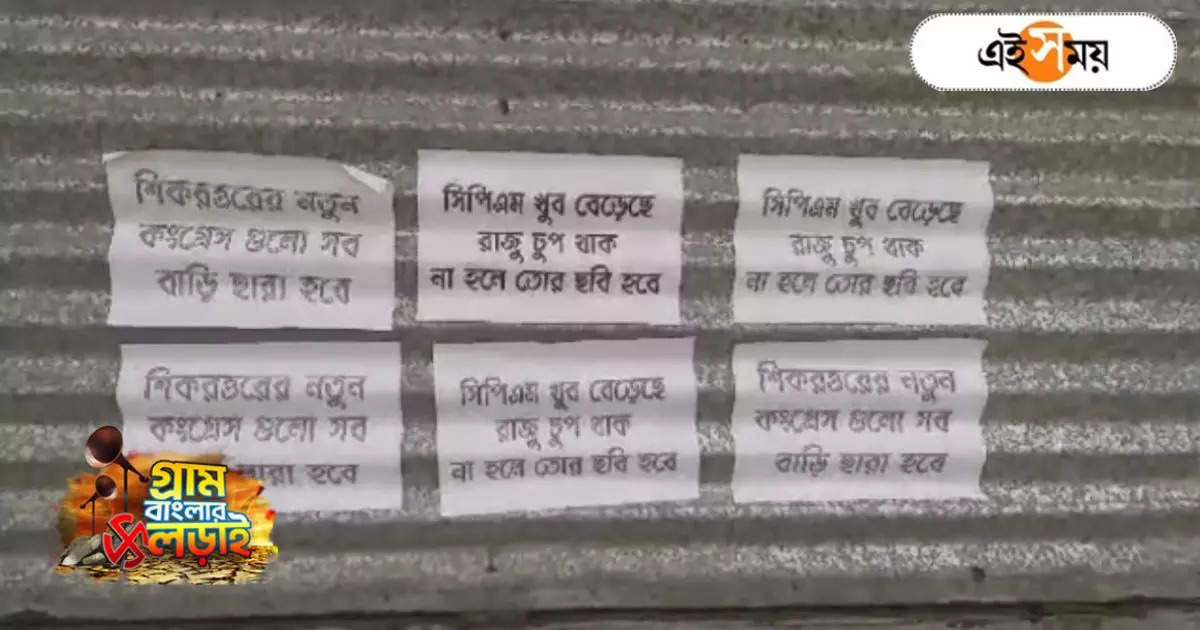 এই সময়
শিকরগুরের নতুন
কংগ্রেস গুলো সব
বাড়ি ছারা হবে
সিপিএম খুব বেড়েছে
রাজু চুপ থাক
না হলে তোর ছবি হবে
সিপিএম খুব বেড়েছে
রাজু চুপ থাক
না হলে তোর ছবি হবে
শিকরগুরের নতুন
কংগ্রেস গুলো সব
ছারা হবে
সিপিএম খুব বেড়েছে
রাজু চুপ থাক
না হলে তোর ছবি হবে
শিকরগুরের নতুন
কংগ্রেস গুলো সব
বাড়ি ছারা হবে
গ্রাম
বাংলার
লড়াই